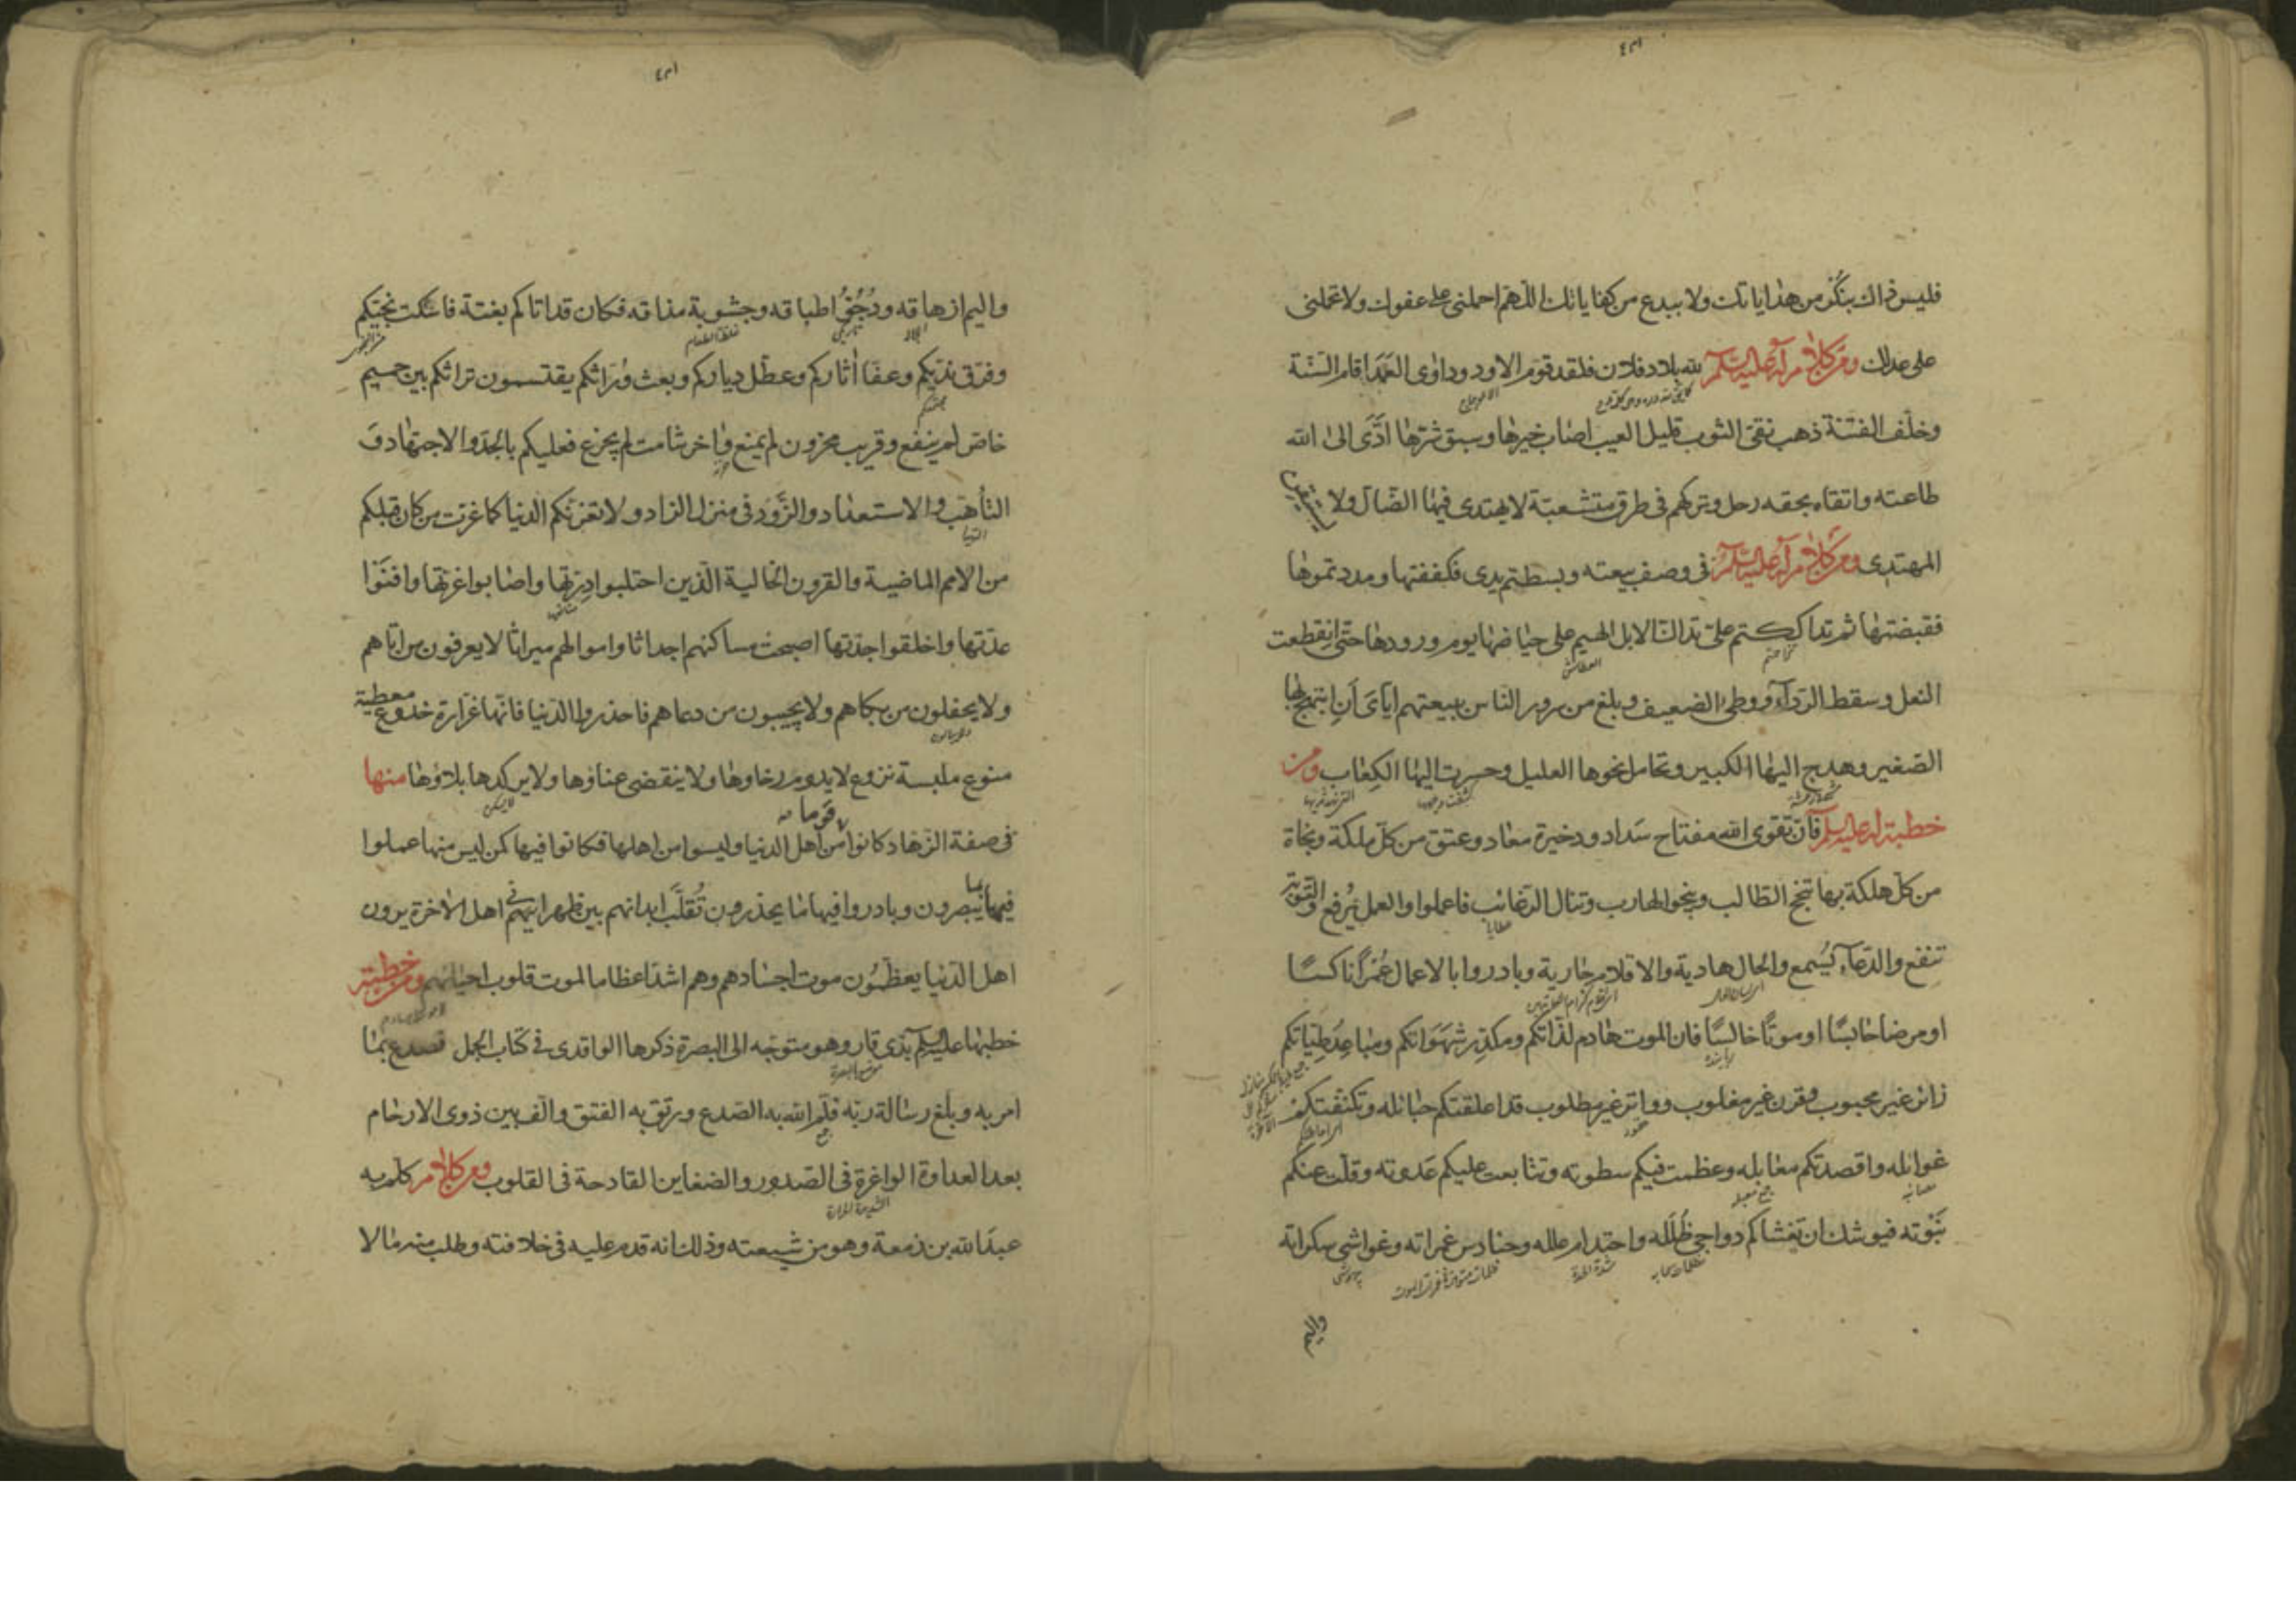 فليس ذاك بنكر من هداياتك ولا ببدع من كفاياتك اللهم احملني على عفوك ولا تحملني
على عدلك ومن كلام له عليه السلام لله بلاد فلان فلقد قوم الاود وداوى العمد اقام السنة
وخلف الفتنة ذهب نقى الثوب قليل العيب اصاب خيرها وسبق شرها ادى الى الله
طاعته واتقاه بحقه رحل وتركهم في طرق متشعبة لا يهتدى فيها الضال ولا يستيقن
المهتدى ومن كلام له عليه السلام في وصف بيعته وبسطتم يدى فكففتها ومددتموها
فقبضتها ثم تداككتم على تداك الابل الهيم على حياضها يوم ورودها حتى انقطعت
العطاش
النعل وسقط الرداء ووطئ الضعيف وبلغ من سرور الناس ببيعتهم اياى أن ابتهج بها
الصغير وهدج اليها الكبير وتحامل نحوها العليل وحسرت اليها الكعاب ومن
خطبة له عليه السلم فان تقوى الله مفتاح سداد وذخيرة معاد وعتق من كل ملكة ونجاة
من كل هلكة بها ينجح الطالب وينجو الهارب وتنال الرغائب فاعملوا والعمل يرفع والتوبة
عطايا
تنفع والدعاء يسمع والحال هادية والاقلام جارية وبادروا بالاعمال عمرا ناكسا
او مرضا حابسا او موتا خالسا فان الموت هادم لذاتكم ومكدر شهواتكم ومباعد طياتكم
زائر غير محبوب وقرن غير مغلوب وواتر غير مطلوب قد اعلقتكم حبائله وتكنفتكم
غوائله واقصدتكم معابله وعظمت فيكم سطوته وتتابعت عليكم عدوته وقلت عنكم
جمع معبلة
نبوته فيوشك ان تغشاكم دواجي ظلله واحتدام علله وحنادس غمراته وغواشي سكراته
واليم
واليم ازهاقه ودجو اطباقه وجشوبة مذاقه فكان قد اتاكم بغتة فاسكت نجيكم
وفرق نديكم وعفا اثاركم وعطل دياركم وبعث وراثكم يقتسمون تراثكم بين حميم
خاص لم ينفع وقريب محزون لم يمنع واخر شامت لم يجزع فعليكم بالجد والاجتهاد و
التأهب والاستعداد والتزود في منزل الزاد ولا تغرنكم الدنيا كما غرت من كان قبلكم
من الامم الماضية والقرون الخالية الذين احتلبوا درتها واصابوا غرتها وافنوا
عدتها واخلقوا جدتها اصبحت مساكنهم اجداثا واموالهم ميراثا لا يعرفون من اتاهم
ولا يحفلون من بكاهم ولا يجيبون من دعاهم فاحذروا الدنيا فانها غرارة خدوع معطية
منوع ملبسة نزوع لا يدوم رخاوها ولا ينقضى عناوها ولا يركد بلاؤها منها
في صفة الزهاد كانوا قوما من اهل الدنيا وليسوا من اهلها فكانوا فيها كمن ليس منها عملوا
فيها بما يبصرون وبادروا فيها ما يحذرون تقلب ابدانهم بين ظهراني اهل الاخرة يرون
اهل الدنيا يعظمون موت اجسادهم وهم اشد اعظاما لموت قلوب احيائهم ومن خطبة
خطبها عليه السلم بذى قار وهو متوجه الى البصرة ذكرها الواقدى في كتاب الجمل فصدع بما
امر به وبلغ رسالة ربه فلم الله به الصدع ورتق به الفتق والف بين ذوى الارحام
بعد العداوة الواغرة في الصدور والضغاين القادحة في القلوب ومن كلام كلم به
عبد الله بن زمعة وهو من شيعته وذلك انه قدم عليه في خلافته وطلب منه مالا